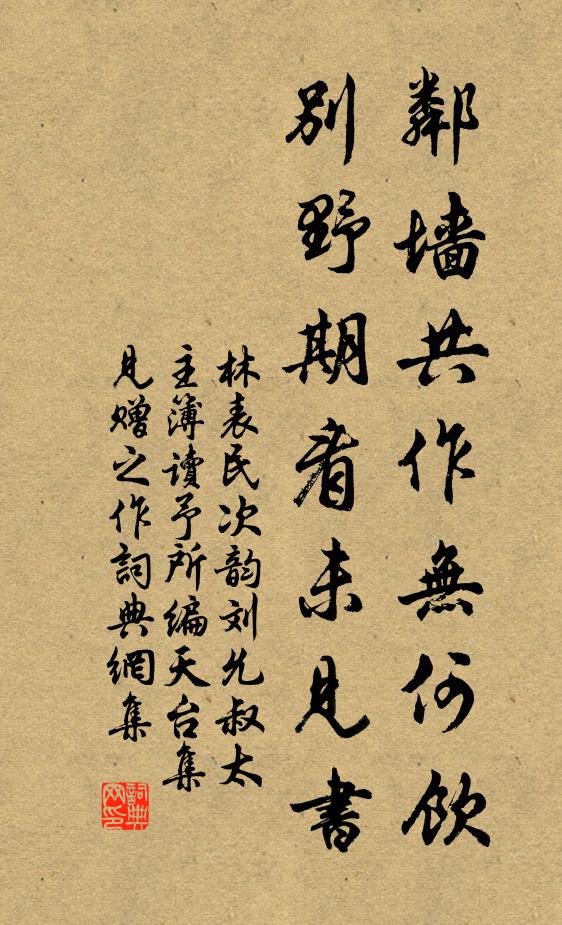 鄰墻共作無何飲
別野期看未見書
林表民次韵刘允叔太
主簿讀予所編天台集
見赠之作詞典網集
詞典网印